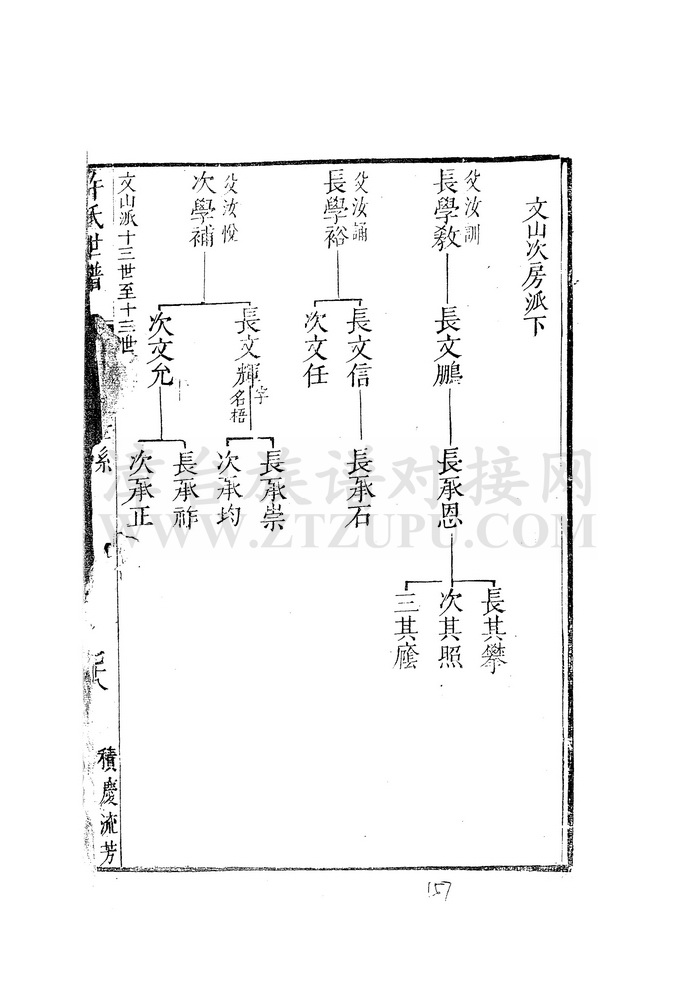 文山次房派下
父汝訓
長學敎
長文鵬
長承恩
長其攀
次其照
三其廕
父汝誦
長學裕
長文信
次文任
長承石
父汝悅
次學補
長文輝
字名梧
次文允
長承崇
次承均
長承祚
次承正
文山派十三世至十三世
許氏世譜
系
積慶流芳
家谱对接网
WWW.ZTZUPU.COM
157